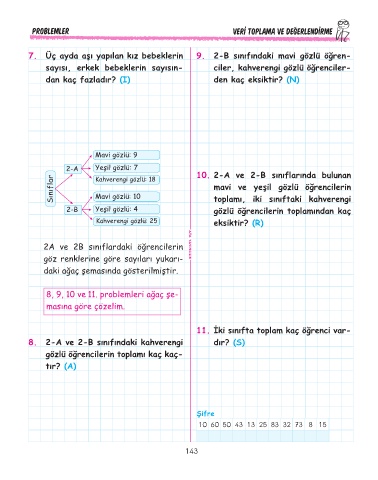 PROBLEMLER
VERİ TOPLAMA VE DEĞERLENDİRME
7. Üç ayda aşı yapılan kız bebeklerin
sayısı, erkek bebeklerin sayısın-
dan kaç fazladır? (I)
Sınıflar
2-A
Mavi gözlü: 9
Yeşil gözlü: 7
Kahverengi gözlü: 18
2-B
Mavi gözlü: 10
Yeşil gözlü: 4
Kahverengi gözlü: 25
2A ve 2B sınıflardaki öğrencilerin
göz renklerine göre sayıları yukarı-
daki ağaç şemasında gösterilmiştir.
8, 9, 10 ve 11. problemleri ağaç şe-
masına göre çözelim.
8. 2-A ve 2-B sınıfındaki kahverengi
gözlü öğrencilerin toplamı kaç kaç-
tır? (A)
9. 2-B sınıfındaki mavi gözlü öğren-
ciler, kahverengi gözlü öğrenciler-
den kaç eksiktir? (N)
10. 2-A ve 2-B sınıflarında bulunan
mavi ve yeşil gözlü öğrencilerin
toplamı, iki sınıftaki kahverengi
gözlü öğrencilerin toplamından kaç
eksiktir? (R)
11. İki sınıfta toplam kaç öğrenci var-
dır? (S)
Şifre
10 60 50 43 13 25 83 32 73 8 15
143